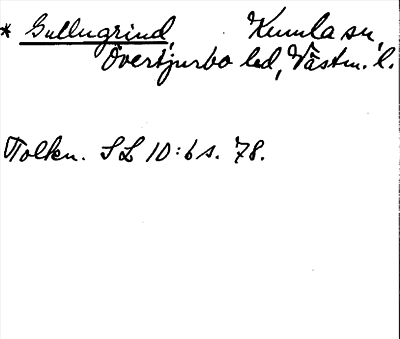 * Gullugrind, Kumla sn,
Övertjurbo hd, Västm. l.
Tolkn. SL 10:6 s. 78.